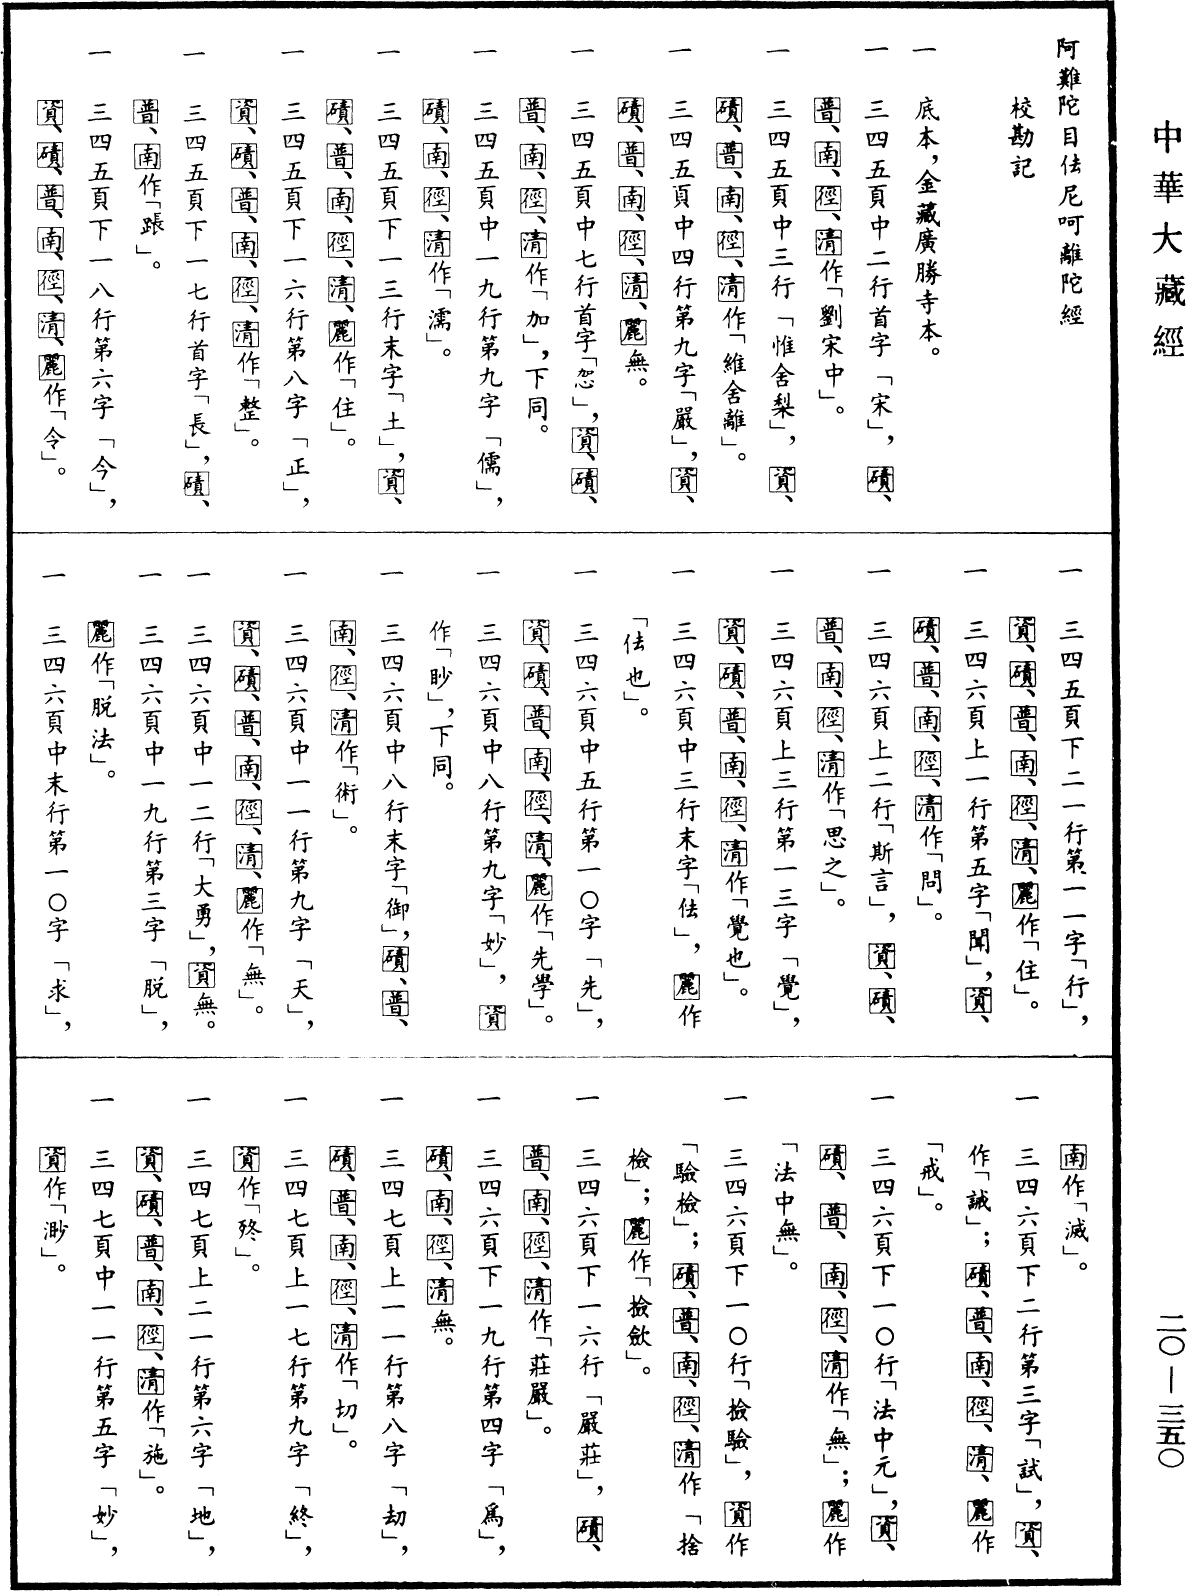 中華大藏經
二〇—三五〇
阿難陀目佉尼呵離陀經
校勘記
一　底本，金藏廣勝寺本。
一　三四五頁中二行首字「宋」，磧、
普、南、徑、清作「劉宋中」。
一　三四五頁中三行「惟舍梨」，資、
磧、普、南、徑、清作「維舍離」。
一　三四五頁中四行第九字「嚴」，資、
磧、普、南、徑、清、麗無。
一　三四五頁中七行首字「恕」，資、磧、
普、南、徑、清作「加」，下同。
一　三四五頁中一九行第九字「儒」，
磧、南、徑、清作「濡」。
一　三四五頁下一三行末字「土」，資、
磧、普、南、徑、清、麗作「住」。
一　三四五頁下一六行第八字「正」，
資、磧、普、南、徑、清作「整」。
一　三四五頁下一七行首字「長」，磧、
普、南作「踬」。
一　三四五頁下一八行第六字「今」，
資、磧、普、南、徑、清、麗作「令」。
一　三四五頁下二一行第一一字「行」，
資、磧、普、南、徑、清、麗作「住」。
一　三四六頁上一行第五字「聞」，資、
磧、普、南、徑、清作「問」。
一　三四六頁上二行「斯言」，資、磧、
普、南、徑、清作「思之」。
一　三四六頁上三行第一三字「覺」，
資、磧、普、南、徑、清作「覺也」。
一　三四六頁中三行末字「佉」，麗作
「佉也」。
一　三四六頁中五行第一〇字「先」，
資、磧、普、南、徑、清、麗作「先學」。
一　三四六頁中八行第九字「妙」，資
作「眇」，下同。
一　三四六頁中八行末字「御」，磧、普、
南、徑、清作「術」。
一　三四六頁中一一行第九字「天」，
資、磧、普、南、徑、清、麗作「無」。
一　三四六頁中一二行「大勇」，資無。
一　三四六頁中一九行第三字「脱」，
麗作「脱法」。
一　三四六頁中末行第一〇字「求」，
南作「滅」。
一　三四六頁下二行第三字「試」，資、
作「誡」；磧、普、南、徑、清、麗作
「戒」。
一　三四六頁下一〇行「法中元」，資、
磧、普、南、徑、清作「無」；麗作
「法中無」。
一　三四六頁下一〇行「撿驗」，資作
「驗檢」；磧、普、南、徑、清作「捨
檢」；麗作「撿斂」。
一　三四六頁下一六行「嚴莊」，磧、
普、南、徑、清作「莊嚴」。
一　三四六頁下一九行第四字「爲」，
磧、南、徑、清無。
一　三四七頁上一一行第八字「劫」，
磧、普、南、徑、清作「切」。
一　三四七頁上一七行第九字「終」，
資作「殁」。
一　三四七頁上二一行第六字「地」，
資、磧、普、南、徑、清作「施」。
一　三四七頁中一一行第五字「妙」，
資作「渺」。